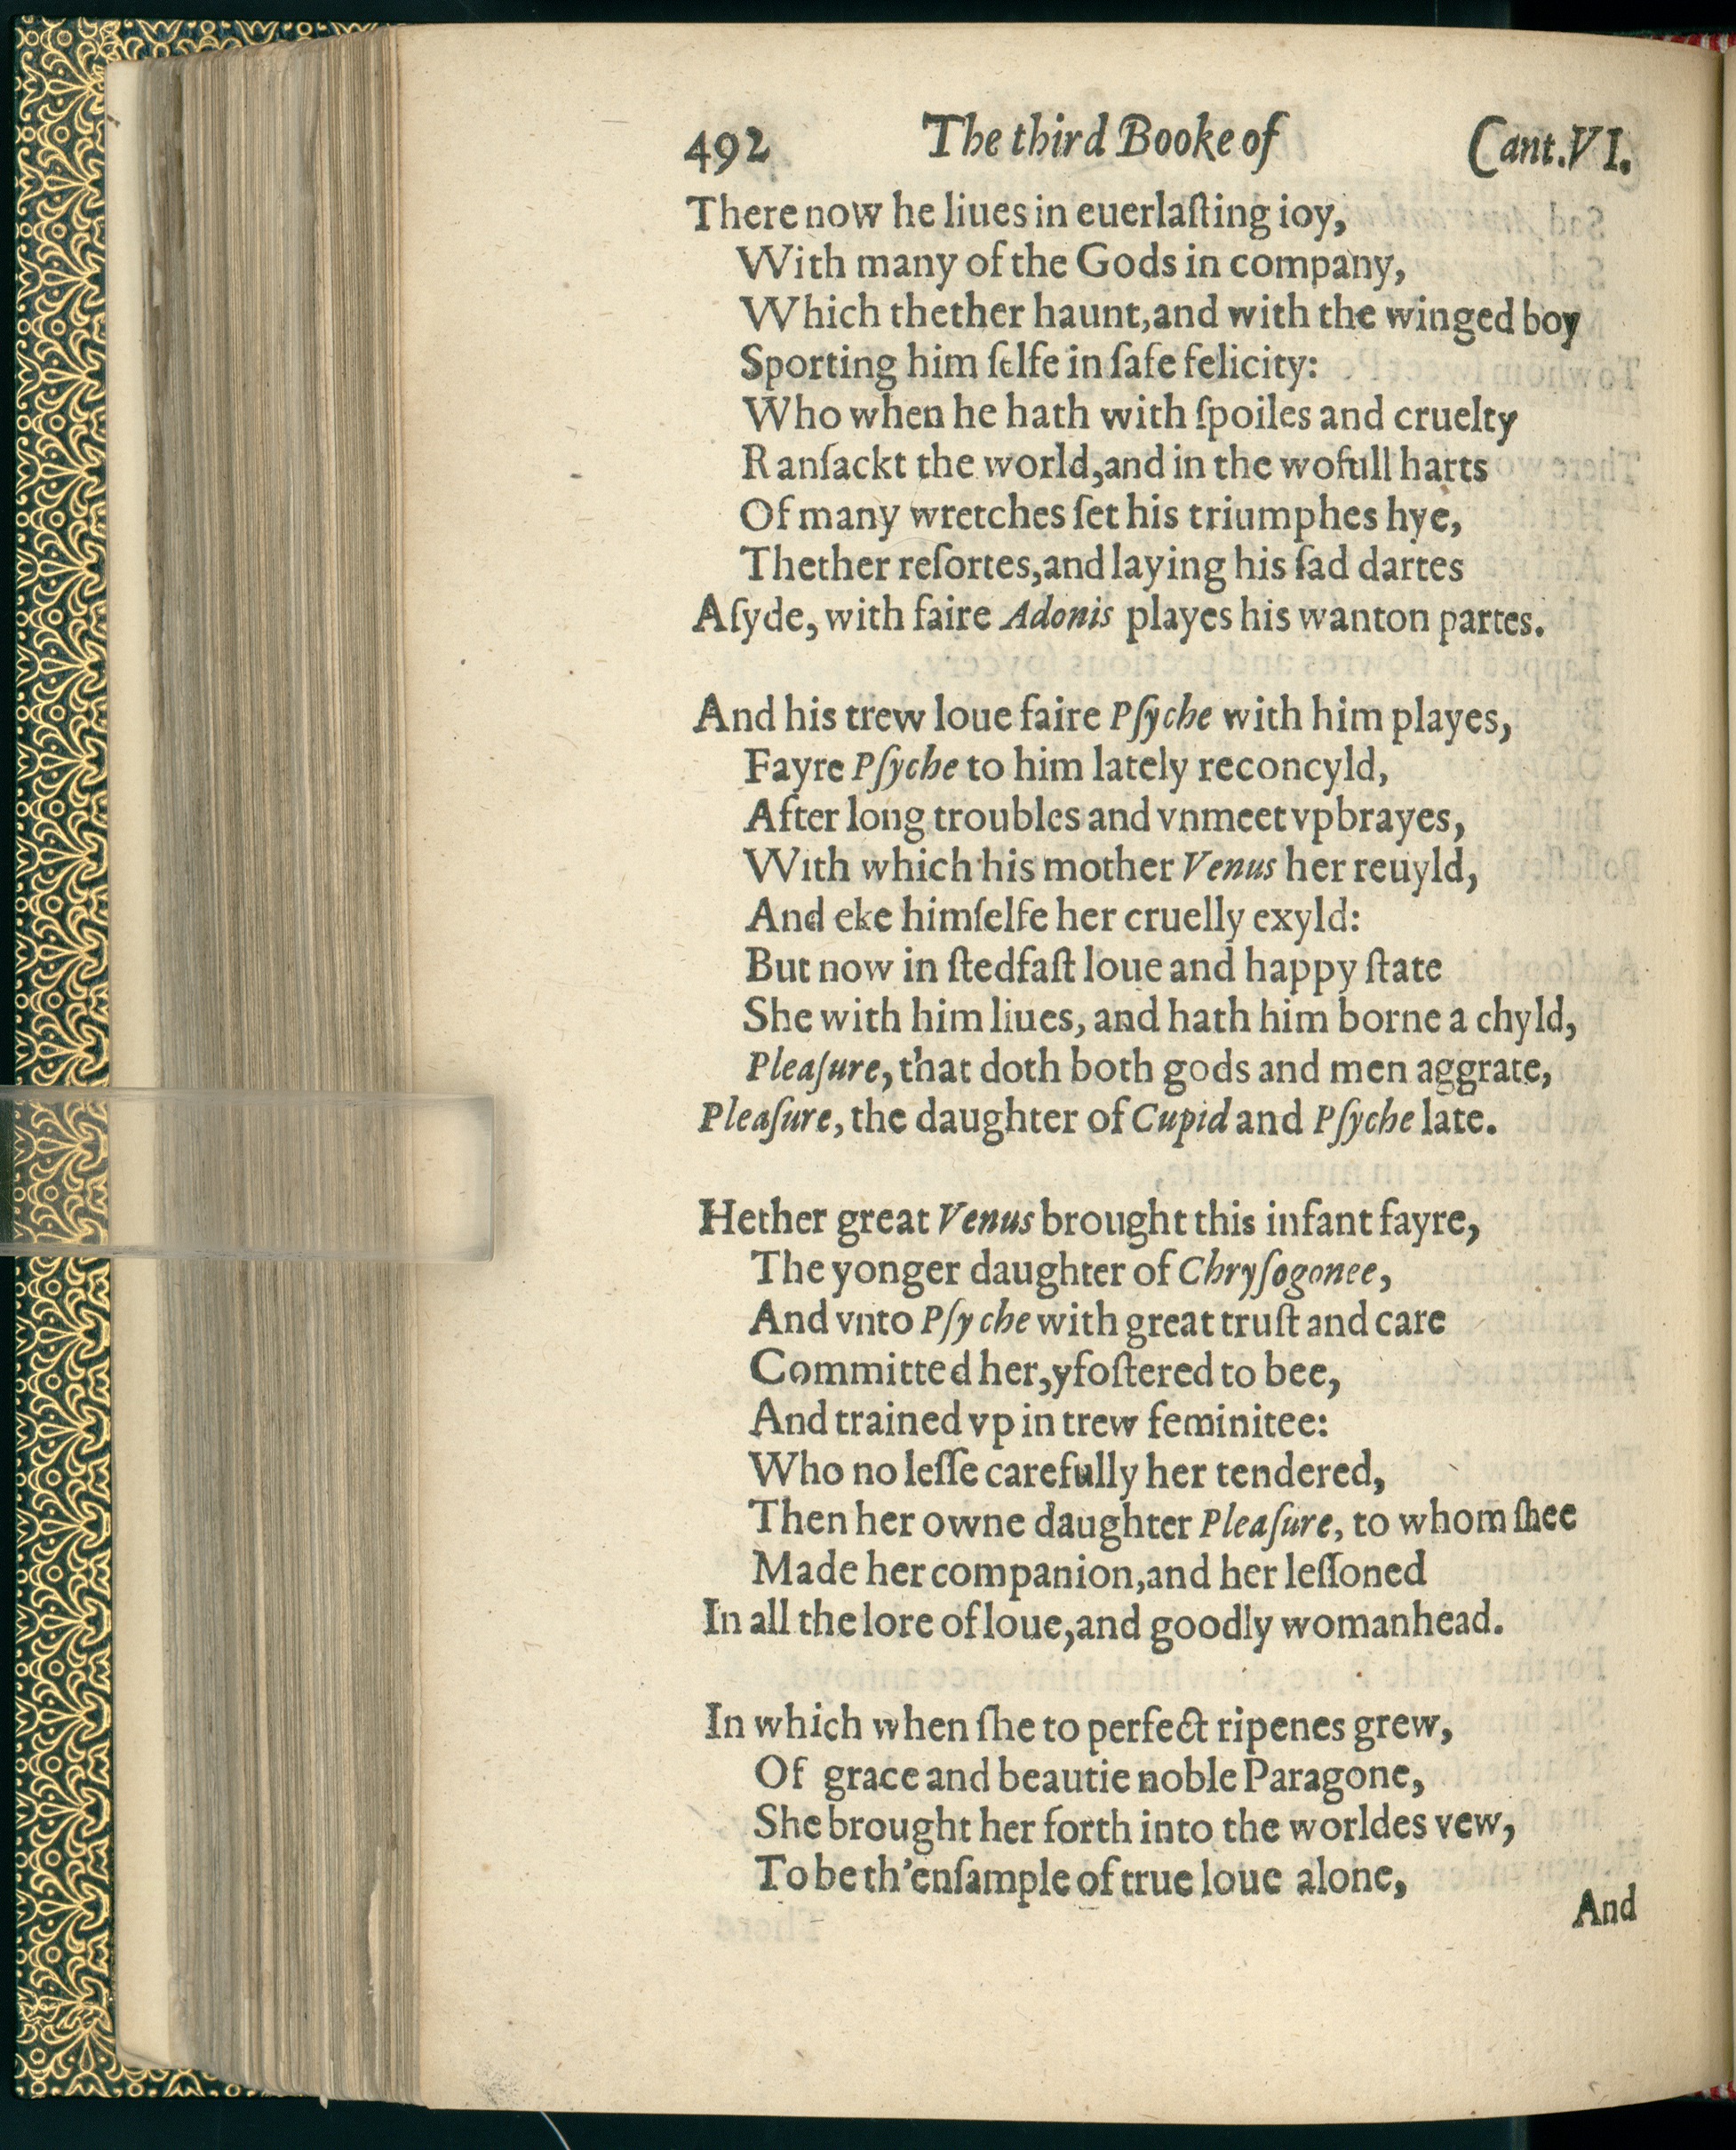 492 The third Booke of Cant.VI.
There now he liues in euerlaſting ioy,
With many of the Gods in company,
Which thether haunt, and with the winged boy
Sporting him ſelfe in ſafe felicity:
Who when he hath with ſpoiles and cruelty
Ranſackt the world, and in the wofull harts
Of many wretches ſet his triumphes hye,
Thether reſortes, and laying his ſad dartes
Aſyde, with faire Adonis playes his wanton partes.
And his trew loue faire Pſyche with him playes,
Fayre Pſyche to him lately reconcyld,
After long troubles and vnmeet vpbrayes,
With which his mother Venus her reuyld,
And eke himſelfe her cruelly exyld:
But now in ſtedfaſt loue and happy ſtate
She with him liues, and hath him borne a chyld,
Pleaſure, that doth both gods and men aggrate,
Pleaſure, the daughter of Cupid and Pſyche late.
Hether great Venus brought this infant fayre,
The yonger daughter of Chryſogonee,
And vnto Pſyche with great truſt and care
Committed her, yfoſtered to bee,
And trained vp in trew feminitee:
Who no leſſe carefully her tendered,
Then her owne daughter Pleaſure, to whom ſhee
Made her companion, and her leſſoned
In all the lore of loue, and goodly womanhead.
In which when ſhe to perfect ripenes grew,
Of grace and beautie noble Paragone,
She brought her forth into the worldes vew,
To be th'enſample of true loue alone,
And